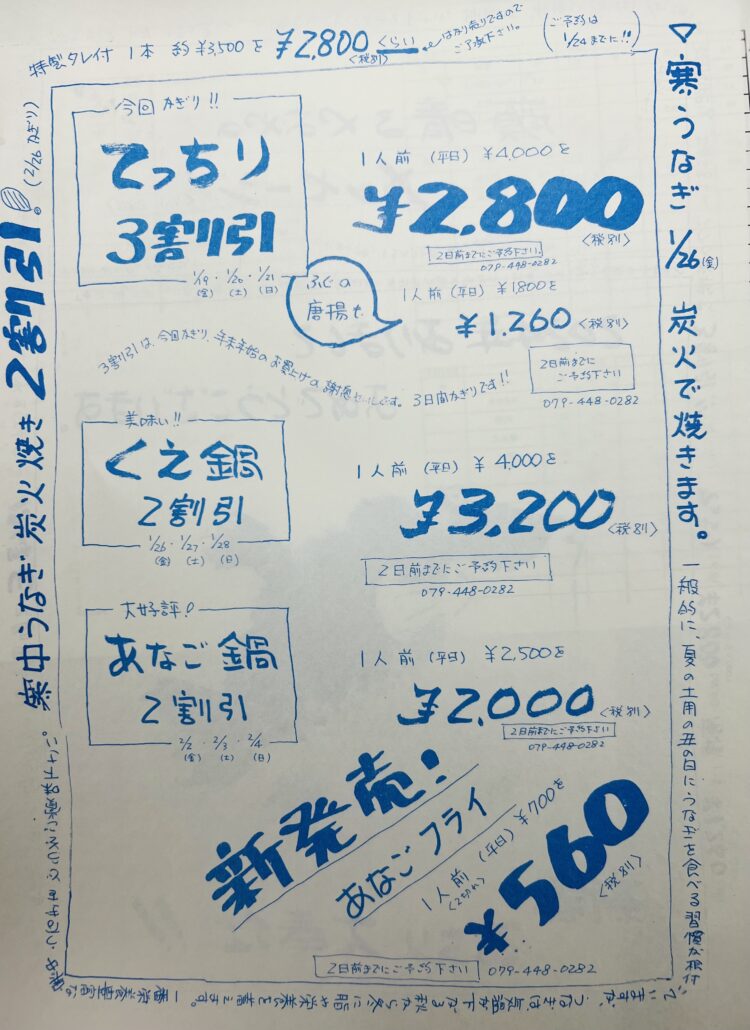 特製タレ付 1本 約¥3,500を ¥2,800くらい〈税別〉
はかり売りですので
ご了承下さい。
(ご予約は
1/24までに!!)
▽寒うなぎ 1/26(金) 炭火で焼きます。
一般的に、夏の土用の丑の日にうなぎを食べる習慣が根付
いていますが、うなぎは気温が下がる秋から冬に脂や栄養を蓄えます。一番栄養豊富な
寒中うなぎ 炭火焼き 2割引!。(2/26かぎり)
今回かぎり!!
てっちり
3割引
1/19・1/20・1/21
(金) (土) (日)
1人前 (平日) ¥4,000を
¥2,800
〈税別〉
2日前までにご予約下さい
079-448-0282
ふぐの
唐揚も
1人前(平日) ¥1,800を
¥1,260〈税別〉
2日前までに
ご予約下さい
079-448-0282
3割引は、今回かぎり、年末年始のお買上げの謝恩セールです。3日間かぎりです!!
美味い!!
くえ鍋
2割引
1/26・1/27・1/28
(金) (土) (日)
1人前 (平日) ¥4,000を
¥3,200〈税別〉
2日前までにご予約下さい
079-448-0282
大好評!
あなご鍋
2割引
2/2・2/3・2/4
(金) (土) (日)
1人前 (平日) ¥2,500を
¥2,000〈税別〉
2日前までにご予約下さい
079-448-0282
新発売!
あなごフライ
1人前 (平日) ¥700を
(2切れ)
¥560
〈税別〉
2日前までにご予約下さい 079-448-0282